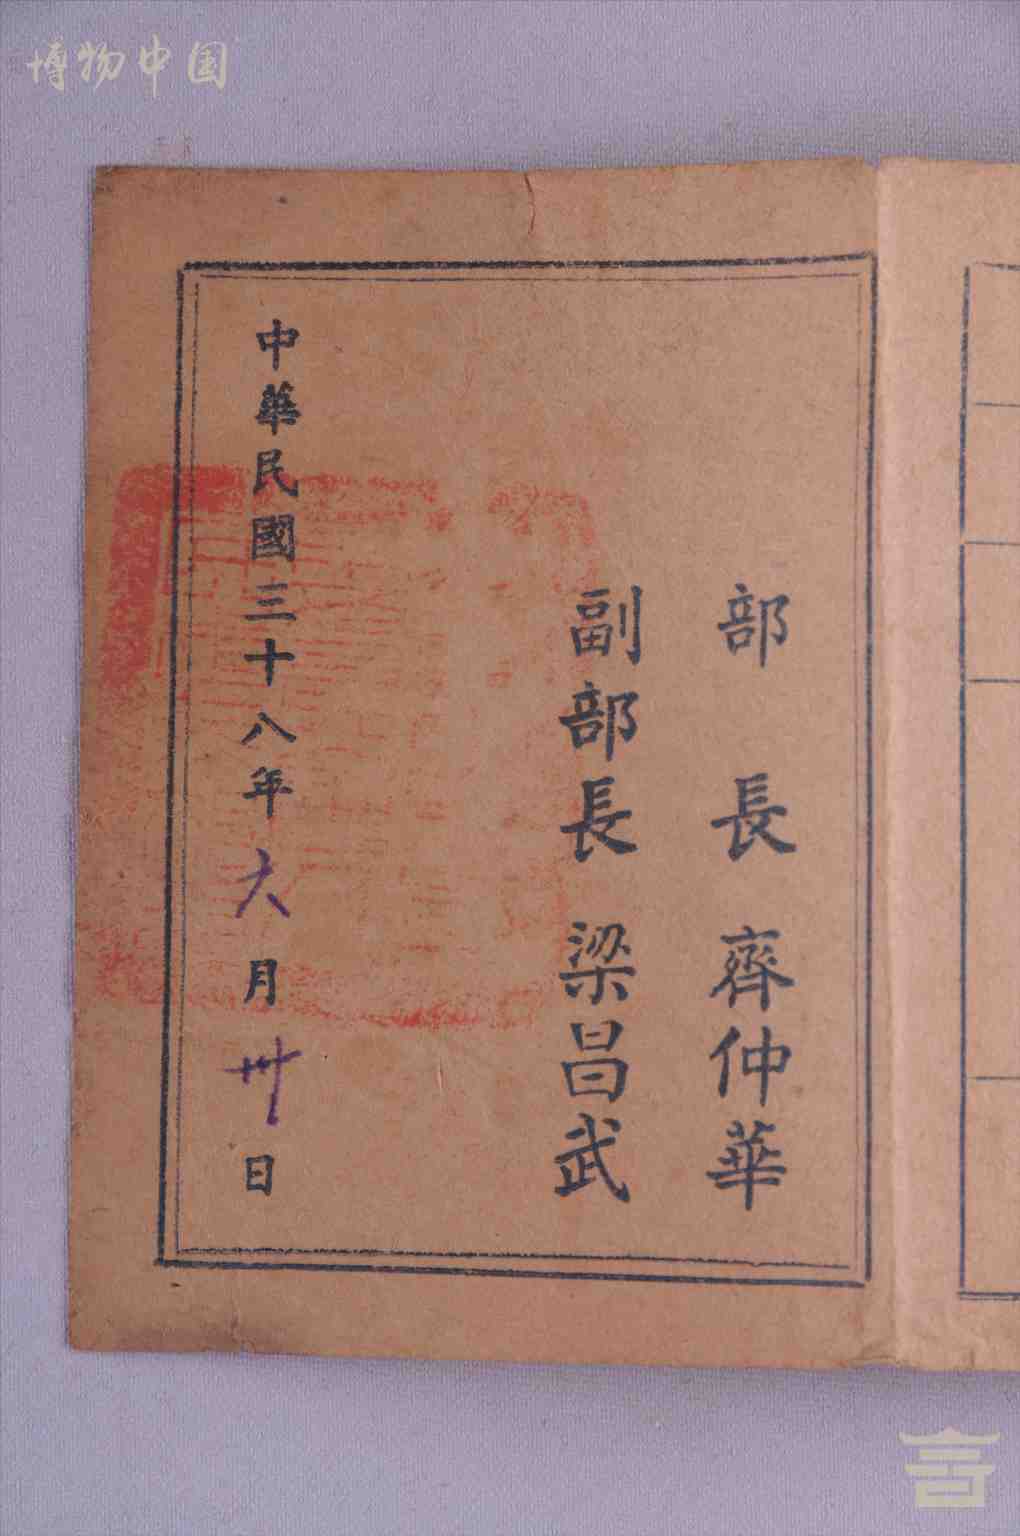 博物中国
部長 齊仲華
副部長 梁昌武
中華民國三十八年六月卅日